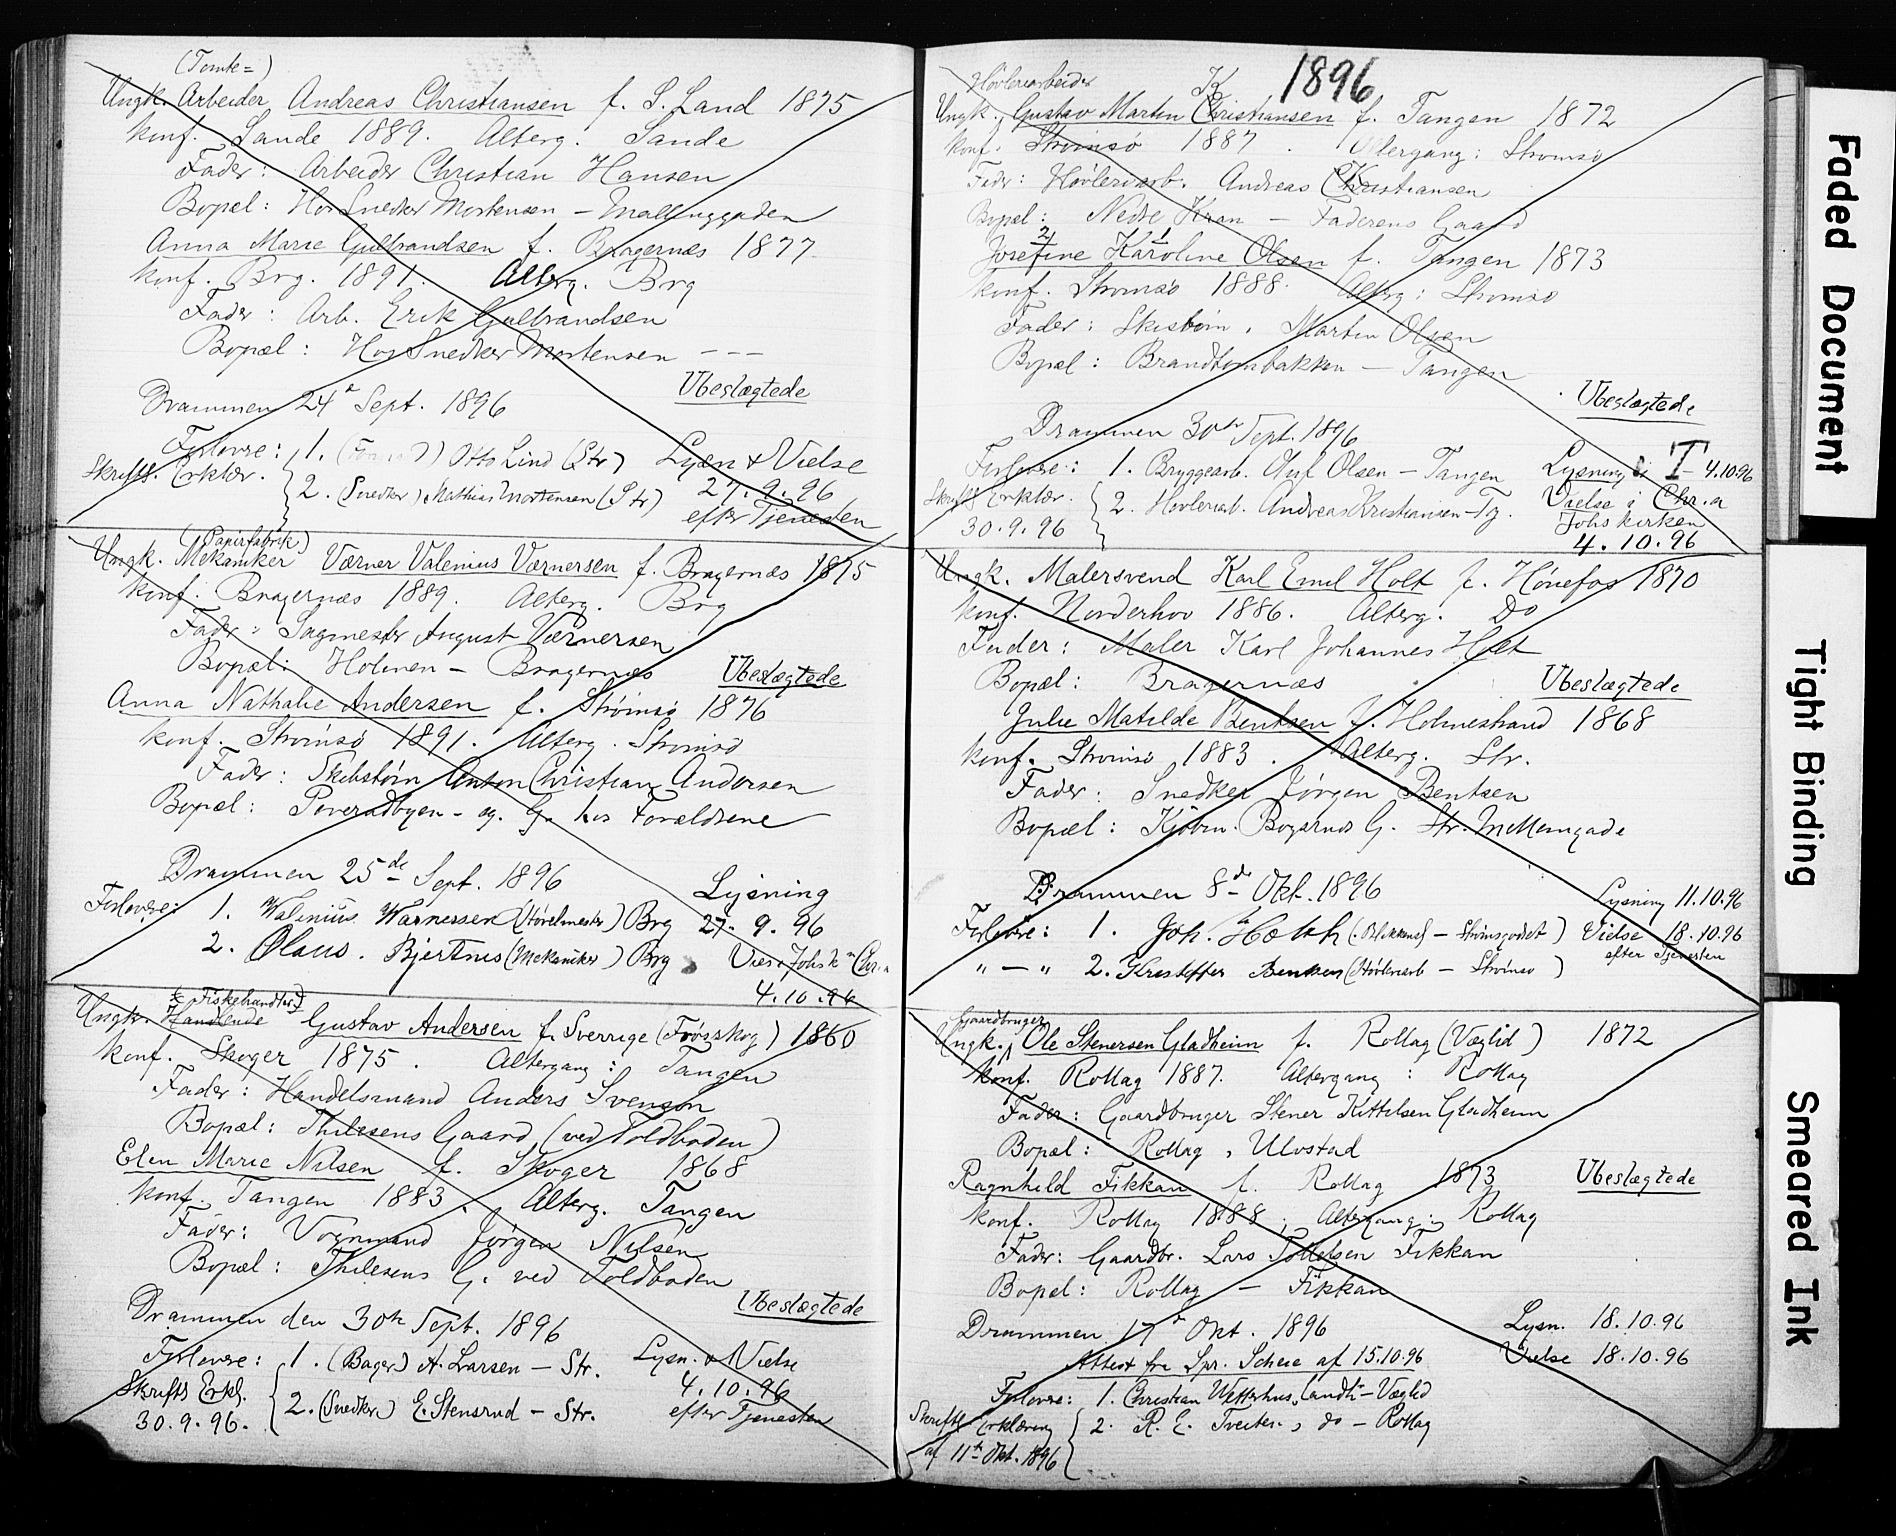 (Tomte=)
Ungk. Arbeider Andreas Christiansen f. S. Land 1875
konf. Sande 1889. Alterg. Sande
Fader: Arbeider Christian Hansen
Bopæl: Hos Snedker Mortensen –
Anna Marie Gulbrandsen f. Bragernæs 1877
konf. Brg. 1891. Alterg. Brg
Fader: Arb. Erik Gulbrandsen
Bopæl: Hos Snedker Mortensen – – –
Ubeslægtede
Drammen 24de Sept. 1896
Forlovere: 1. Otto Lind (Str) Lysn & Vielse
Skriftl. Erklær. 2. (Snedker) Mathias Mortensen (Str) 27.9.96
efter Tjenesten
(Papirfabrik)
Ungk. Mekaniker Værner Valenius Værnersen f. Bragernæs 1875
konf. Bragernæs 1889. Alterg. Brg
Fader: Sagmester August Værnersen
Bopæl: Holmen – Bragernæs Ubeslægtede
Anna Nathalie Andersen f. Strømsø 1876
konf. Strømsø 1891. Alterg. Strømsø
Fader: Skibstøm Anton Christian Andersen
Bopæl: – og. G. hos Forældrene
Drammen 25de Sept. 1896 Lysning
Forlovere: 1. Walinius Warnessen (Høvelmester) Brg 27.9.96
2. Olaus. Bjertnes (Mekaniker) Brg Vies i Joh.s k. Chr.a
4.10.96
(Fiskehandler)
Ungk. Handlende Gustav Andersen f. Sverrige (Frøsskog) 1860
konf. Skoger 1875. Altergang: Tangen
Fader: Handelsmand Anders Svenson
Bopæl: Thilesens Gaard (ved Toldboden)
Elen Marie Nilsen f. Skoger 1868
konf. Tangen 1883. Alterg. Tangen
Fader: Vognmand Jørgen Nilsen
Bopæl: Thilesens G. ved Toldboden
Ubeslægtede
Drammen den 30te Sept. 1896
Forlovere: 1. (Bager) A. Larsen – Str. Lysn. & Vielse
Skriftl Erkl. 2. (Snedker) E. Stensrud – Str. 4.10.96
30.9.96. efter Tjenesten
1896
Høvleriarbeider K
Ungk. Gustav Martin Christiansen f. Tangen 1872
konf. Strømsø 1887. Altergang: Strømsø
Fader: Høvleriarb. Andreas Christiansen
Bopæl: Nedre Kran – Faderens Gaard
2 1
Josefine Karoline Olsen f. Tangen 1873
konf. Strømsø 1888. Alterg: Strømsø
Fader: Skibstøm. Martin Olsen
Bopæl: – Tangen
Ubeslægtede
Drammen 30te Sept. 1896
Forlovere: 1. Bryggearb. Oluf Olsen – Tangen Lysning i T – 4.10.96
Skriftl Erklær. 2. Høvleriarb. Andreas Kristiansen – Tg. Vielse i Chr.a
30.9.96 Johs kirken
4.10.96
Ungk. Malersvend Karl Emil Holt f. Hönefos 1870
konf. Norderhov 1886. Alterg. Do
Fader: Maler Karl Johannes Holt
Bopæl: Bragernæs Ubeslægtede
Julie Matilde Bentsen f. Holmestrand 1868
konf. Strømsø 1883. Alterg. Str.
Fader: Snedker Jørgen Bentsen
Bopæl: Kjøbm. G. Str. Mellemgade
Drammen 8de Okt. 1896
Lysning 11.10.96
Forlovere: 1. Joh. – Strømsgodset) Vielse 18.10.96
efter Tjenesten
„ – „ 2. Kristoffer Bentsen (Høvleriarb – Strømsø)
Gaardbruger
Ungk. Ole Stenersen Gladheim f. Rollag (Væglid) 1872
konf. Rollag 1887. Altergang: Rollag
Fader: Gaardbruger Stener Kittelsen Gladheim
Bopæl: Rollag, Ulvstad
Ragnhild Fikkan f. Rollag 1873 Ubeslægtede
konf. Rollag 1888. Altergang: Rollag
Fader: Gaardbr. Lars Tollefsen Fikkan
Bopæl: Rollag – Fikkan
Drammen 17de Okt. 1896 Lysn. 18.10.96
Attest fra Spr. Scheie af 15.10.96 Vielse 18.10.96
Forlovere: 1. Christian – Væglid
Skriftl Erklæring 2. R. E. Tveiten, do – Rollag
af 11te Okt. 1896
Faded Document
Tight Binding
Smeared Ink